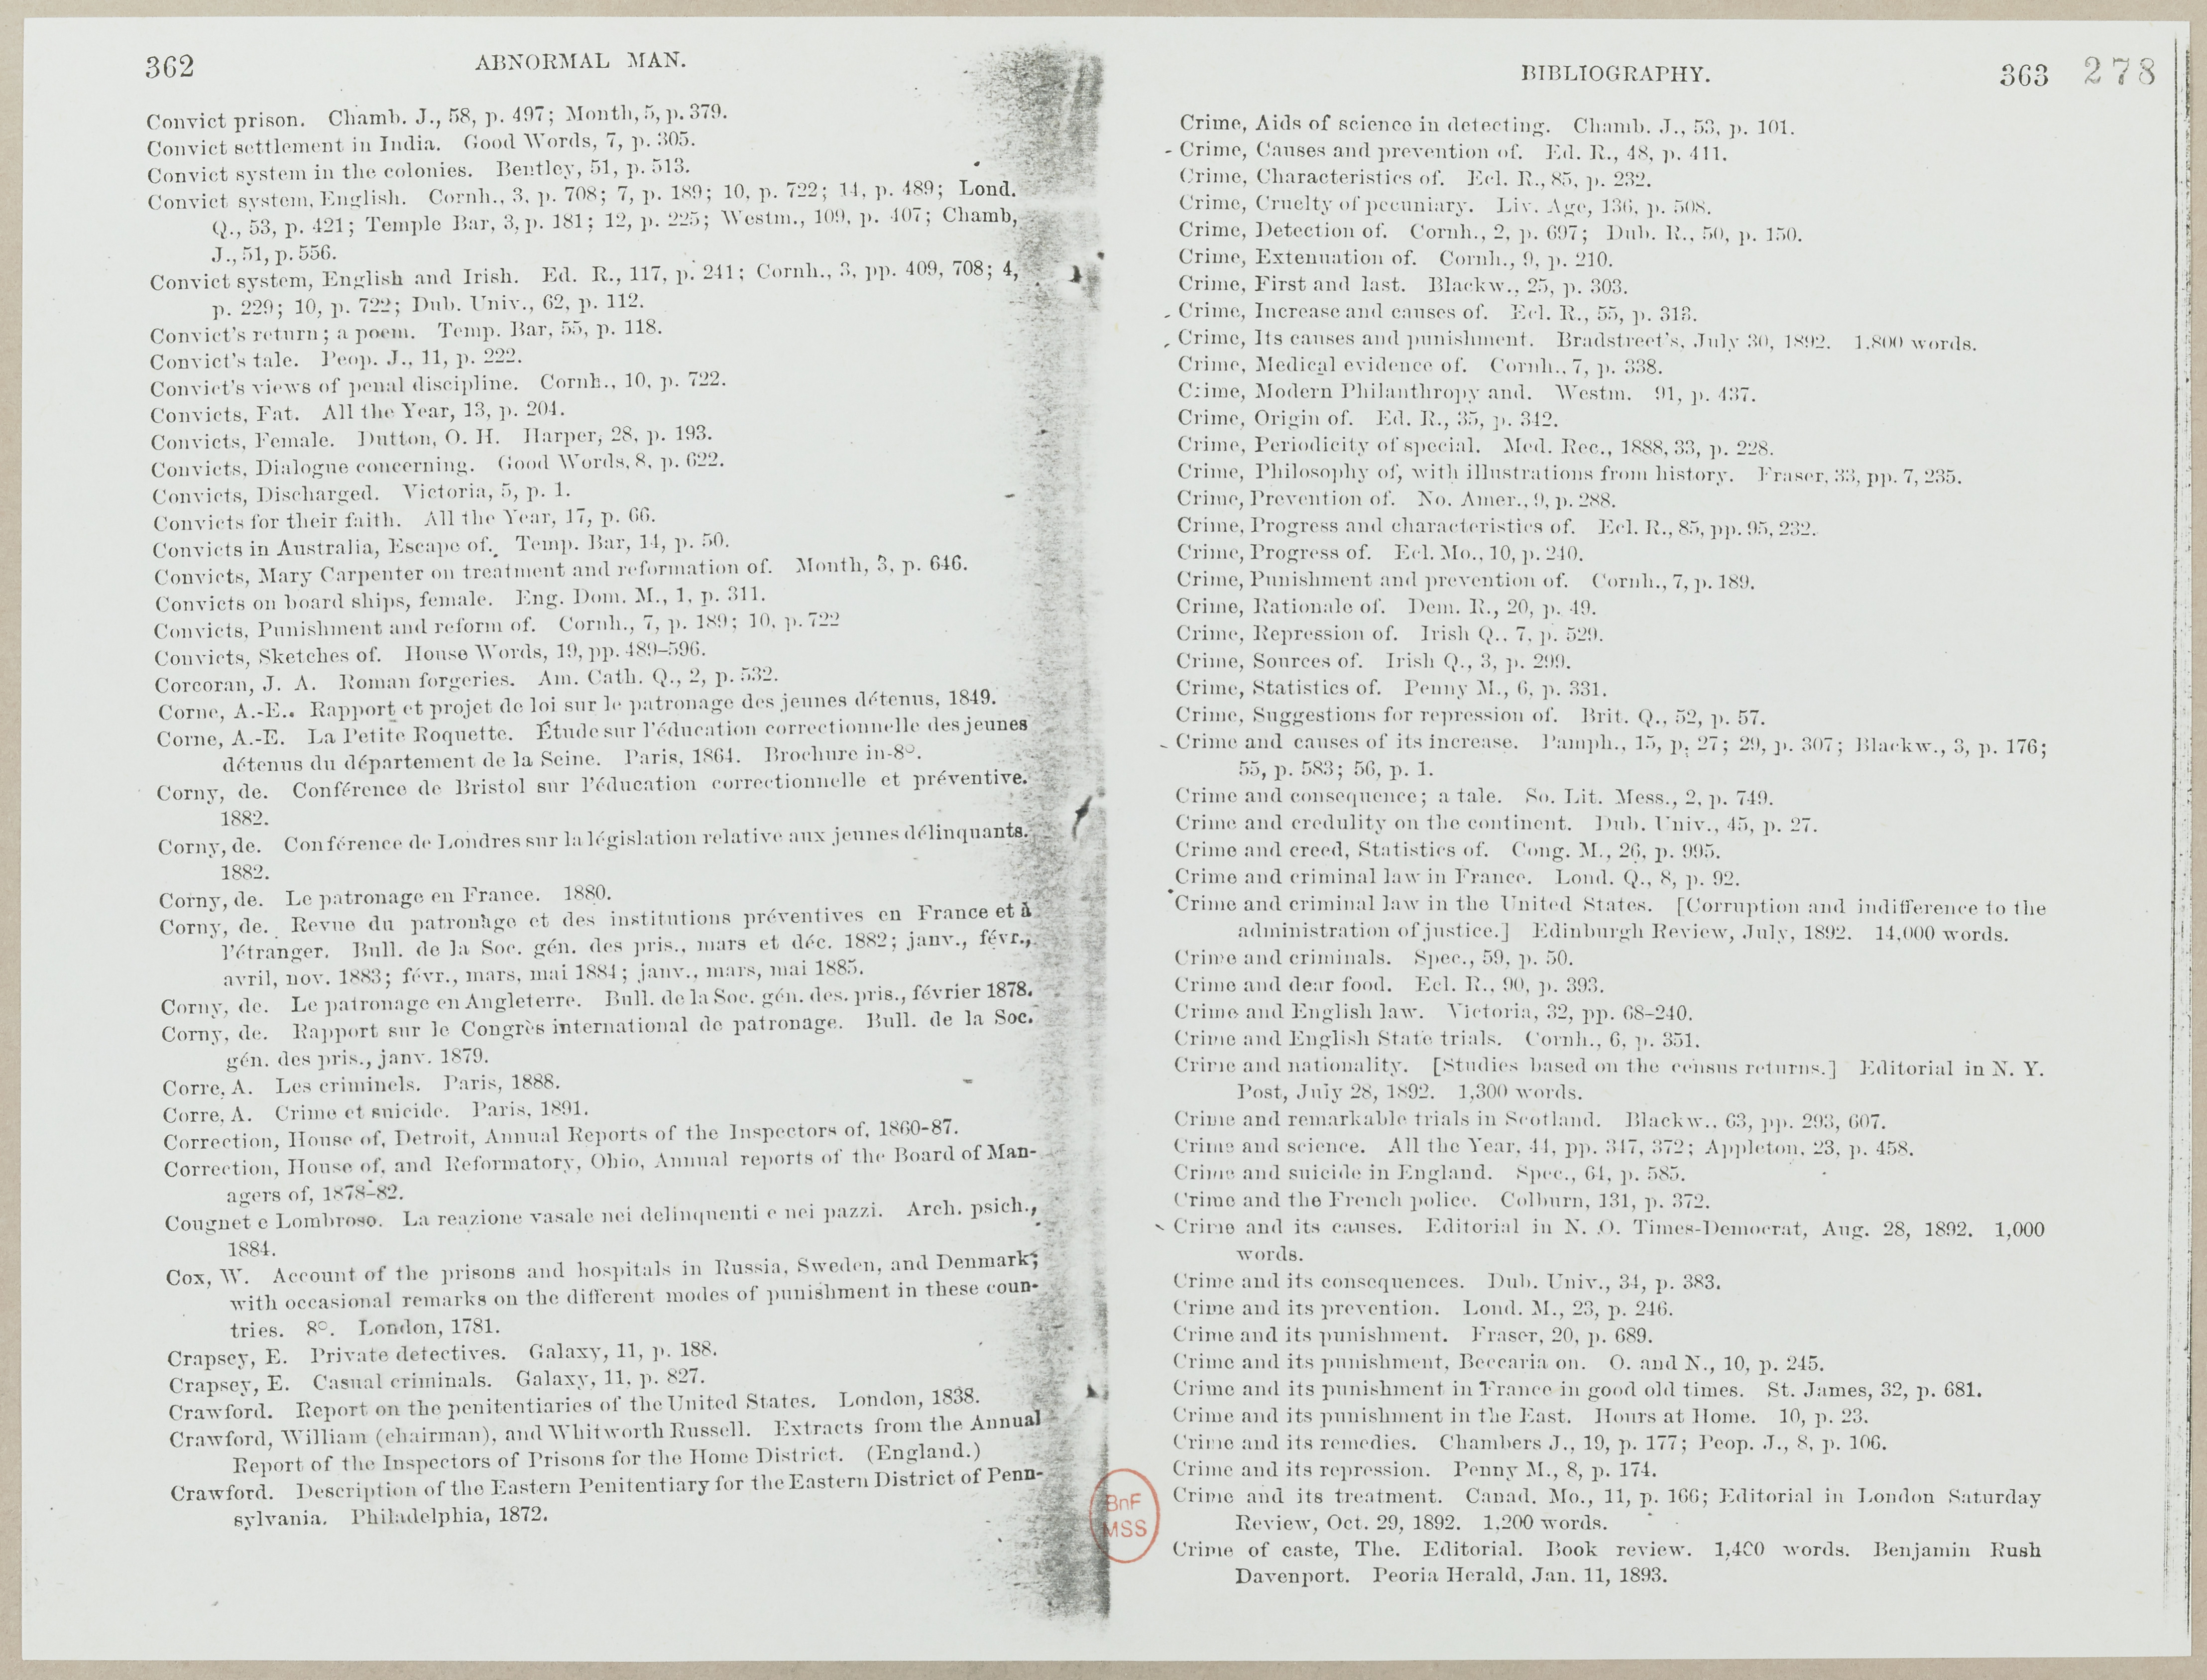 362
ABNORMAL MAN.
Convict prison. Chamb. J., 58, p. 497; Month, 5, p. 379.
Convict settlement in India. Good Words, 7, p. 305.
Convict system in the colonies. Bentley, 51, p. 513.
Convict system, English. Cornh., 3, p. 708; 7, p. 189; 10, p. 722; 14, p. 489; Lond.
Q., 53, p. 421; Temple Bar, 3, p. 181; 12, p. 225; Westm., 109, p. 407; Chamb,
J., 51, p. 556.
Convict system, English and Irish. Ed. R., 117, p. 241; Cornh., 3, pp. 409, 708; 4,
p. 229; 10, p. 722; Dub. Univ., 62, p. 112.
Convict's return; a poem. Temp. Bar, 55, p. 118.
Convict's tale. Peop. J., 11, p. 222.
Convict's views of penal discipline. Cornh., 10, p. 722.
Convicts, Fat. All the Year, 13, p. 204.
Convicts, Female. Dutton, O. H. Harper, 28, p. 193.
Convicts, Dialogue concerning. Good Words, 8, p. 622.
Convicts, Discharged. Victoria, 5, p. 1.
Convicts for their faith. All the Year, 17, p. 66.
Convicts in Australia, Escape of. Temp. Bar, 14, p. 50.
Convicts, Mary Carpenter on treatment and reformation of. Month, 3, p. 646.
Convicts on board ships, female. Eng. Dom. M., 1, p. 311.
Convicts, Punishment and reform of. Cornh., 7, p. 189; 10, p. 722
Convicts, Sketches of. House Words, 19, pp. 489–596.
Corcoran, J. A. Roman forgeries. Am. Cath. Q., 2, p. 532.
Corne, A.-E.. Rapport et projet de loi sur le patronage des jeunes détenus, 1849.
Corne, A.-E. La Petite Roquette. Étude sur l'éducation correctionnelle des jeunes
détenus du département de la Seine. Paris, 1864. Brochure in-8°.
Corny, de. Conférence de Bristol sur l'éducation correctionnelle et préventive.
1882.
Corny, de. Conférence de Londres sur la législation relative aux jeunes délinquants.
1882.
Corny, de. Le patronage en France. 1880.
Corny, de. Revue du patronage et des institutions préventives en France et à
l'étranger. Bull. de la Soc. gén. des pris., mars et déc. 1882; janv., févr.,
avril, nov. 1883; févr., mars, mai 1884; janv., mars, mai 1885.
Corny, de. Le patronage en Angleterre. Bull. de la Soc. gén. des. pris., février 1878.
Corny, de. Rapport sur le Congrès international de patronage. Bull. de la Soc.
gén. des pris., janv. 1879.
Corre, A. Les criminels. Paris, 1888.
Corre, A. Crime et suicide. Paris, 1891.
Correction, House of, Detroit, Annual Reports of the Inspectors of, 1860-87.
Correction, House of, and Reformatory, Ohio, Annual reports of the Board of Man-
agers of, 1878–82.
Cougnet e Lombroso. La reazione vasale nei delinquenti e nei pazzi. Arch. psich.,
1884.
Cox, W. Account of the prisons and hospitals in Russia, Sweden, and Denmark;
with occasional remarks on the different modes of punishment in these coun-
tries. 8°. London, 1781.
Crapsey, E. Private detectives. Galaxy, 11, p. 188.
Crapsey, E. Casual criminals. Galaxy, 11, p. 827.
Crawford. Report on the penitentiaries of the United States. London, 1838.
Crawford, William (chairman), and Whitworth Russell. Extracts from the Annual
Report of the Inspectors of Prisons for the Home District. (England.)
Crawford. Description of the Eastern Penitentiary for the Eastern District of Penn-
sylvania. Philadelphia, 1872.
BIBLIOGRAPHY.
363 278
Crime, Aids of science in detecting. Chamb. J., 53, p. 101.
- Crime, Causes and prevention of. Ed. R., 48, p. 411.
Crime, Characteristics of. Ecl. R., 85, p. 232.
Crime, Cruelty of pecuniary. Liv. Age, 136, p. 508.
Crime, Detection of. Cornh., 2, p. 697; Dub. R., 50, p. 150.
Crime, Extenuation of. Cornh., 9, p. 210.
Crime, First and last. Blackw., 25, p. 303.
Crime, Increase and causes of. Ecl. R., 55, p. 313.
Crime, Its causes and punishment. Bradstreet's, July 30, 1892. 1,800 words.
Crime, Medical evidence of. Cornh., 7, p. 338.
Crime, Modern Philanthropy and. Westm. 91, p. 437.
Crime, Origin of. Ed. R., 35, p. 342.
Crime, Periodicity of special. Med. Rec., 1888, 33, p. 228.
Crime, Philosophy of, with illustrations from history. Fraser, 33, pp. 7, 235.
Crime, Prevention of. No. Amer., 9, p. 288.
Crime, Progress and characteristics of. Ecl. R., 85, pp. 95, 232.
Crime, Progress of. Ecl. Mo., 10, p. 240.
Crime, Punishment and prevention of. Cornh., 7, p. 189.
Crime, Rationale of. Dem. R., 20, p. 49.
Crime, Repression of. Irish Q., 7, p. 529.
Crime, Sources of. Irish Q., 3, p. 299.
Crime, Statistics of. Penny M., 6, p. 331.
Crime, Suggestions for repression of. Brit. Q., 52, p. 57.
Crime and causes of its increase. Pamph., 15, p. 27; 29, p. 307; Blackw., 3, p. 176;
55, p. 583; 56, p. 1.
Crime and consequence; a tale. So. Lit. Mess., 2, p. 749.
Crime and credulity on the continent. Dub. Univ., 45, p. 27.
Crime and creed, Statistics of. Cong. M., 26, p. 995.
Crime and criminal law in France. Lond. Q., 8, p. 92.
Crime and criminal law in the United States. [Corruption and indifference to the
administration of justice.] Edinburgh Review, July, 1892. 14,000 words.
Crime and criminals. Spec., 59, p. 50.
Crime and dear food. Ecl. R., 90, p. 393.
Crime and English law. Victoria, 32, pp. 68–240.
Crime and English State trials. Cornh., 6, p. 351.
Crime and nationality. [Studies based on the census returns.] Editorial in N. Y.
Post, July 28, 1892. 1,300 words.
Crime and remarkable trials in Scotland. Blackw., 63, pp. 293, 607.
Crime and science. All the Year, 44, pp. 347, 372; Appleton, 23, p. 458.
Crime and suicide in England. Spec., 64, p. 585.
Crime and the French police. Colburn, 131, p. 372.
Crime and its causes. Editorial in N. O. Times-Democrat, Aug. 28, 1892. 1,000
words.
Crime and its consequences. Dub. Univ., 34, p. 383.
Crime and its prevention. Lond. M., 23, p. 246.
Crime and its punishment. Fraser, 20, p. 689.
Crime and its punishment, Beccaria on. O. and N., 10, p. 245.
Crime and its punishment in France in good old times. St. James, 32, p. 681.
Crime and its punishment in the East. Hours at Home. 10, p. 23.
Crime and its remedies. Chambers J., 19, p. 177; Peop. J., 8, p. 106.
Crime and its repression. Penny M., 8, p. 174.
Crime and its treatment. Canad. Mo., 11, p. 166; Editorial in London Saturday
Review, Oct. 29, 1892. 1,200 words.
Crime of caste, The. Editorial. Book review. 1,400 words. Benjamin Rush
Davenport. Peoria Herald, Jan. 11, 1893.
BnF
MSS